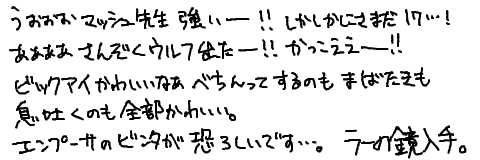 うおぉぉ マッシュ先生 強いー!! しかしかにさまだ!?…!
ああああ さんぞくウルフ出たー!! かっこええー!!
ビックアイかわいいなあ べちんってするのも まばたきも
息吐くのも全部かわいい。
エンプーサのビンタが恐ろしいです…。 ラーの鏡入手。